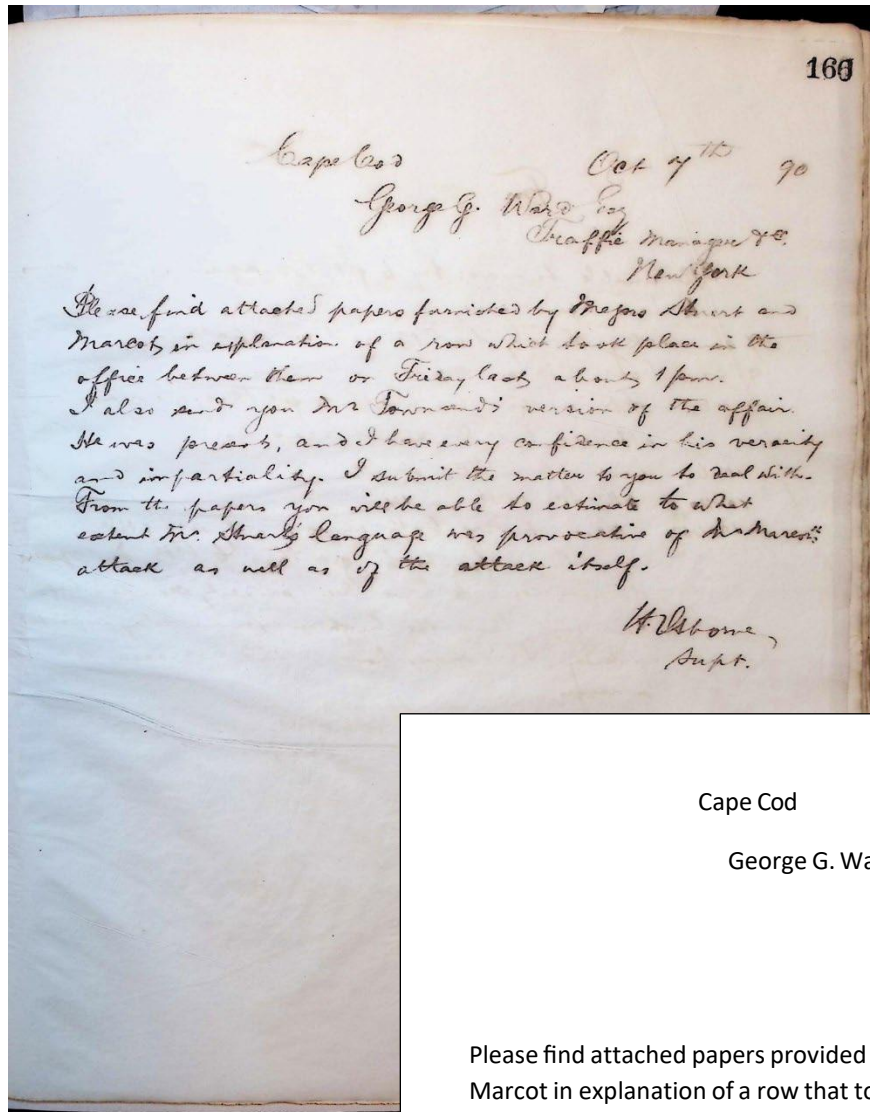 166
Cape Cod Oct 7th 90
George G. Ward Esq
Traffic Manager &c.
New York
Please find attached papers furnished by Messrs Stuart and
Marcot, in explanation of a row which took place in the
office between them on Friday last, about 1 pm.
I also send you Mr Townsend's version of the affair.
He was present, and I have every confidence in his veracity
and impartiality. I submit the matter to you to deal with.
From the papers you will be able to estimate to what
extent Mr. Stuart's language was provocative of Mr Marcot's
attack as well as of the attack itself.
H. Osborne,
Supt.
Cape Cod
George G. Wa
Please find attached papers provided
Marcot in explanation of a row that to